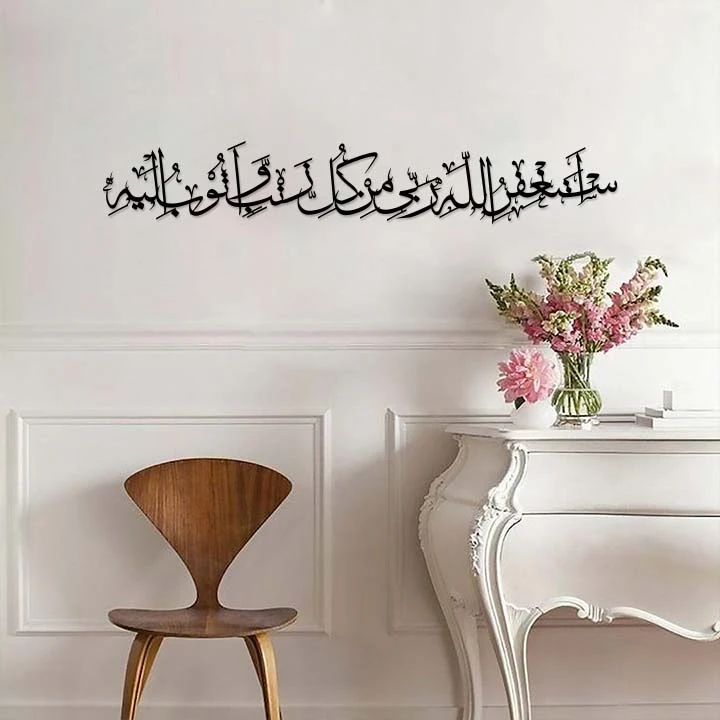 استغفر الله ربي من كل ذنب وأتوب إليه